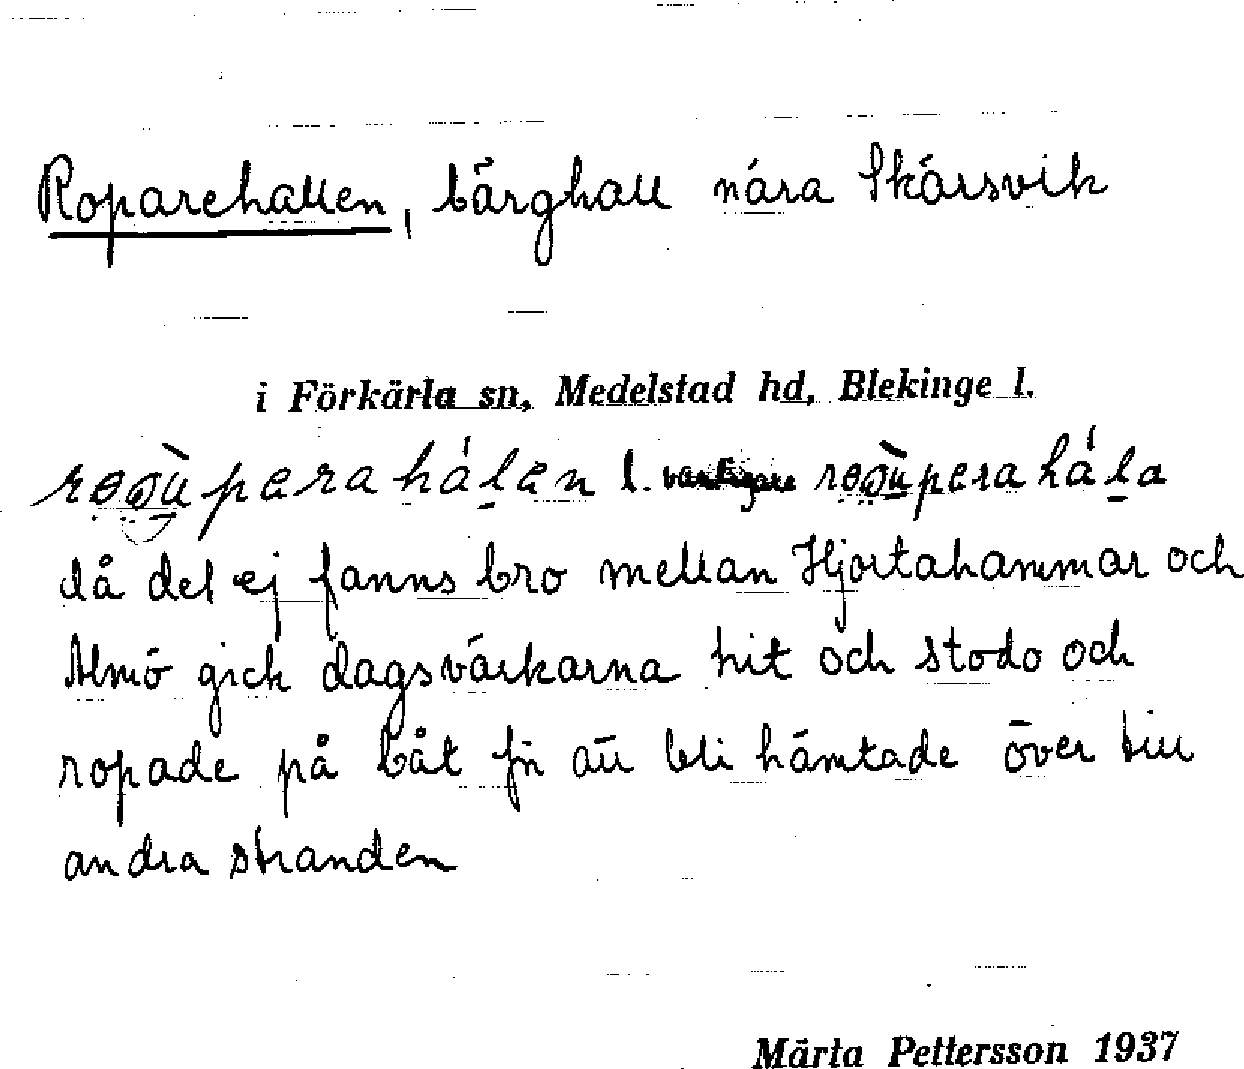 Roparehallen, bärghall nära Skärsvik
i Förkärla sn, Medelstad hd, Blekinge l.
l. vanligare
då det ej fanns bro mellan Hjortahammar och
Almö gick dagsvärkarna hit och stodo och
ropade på båt för att bli hämtade över till
andra stranden
Märta Pettersson 1937